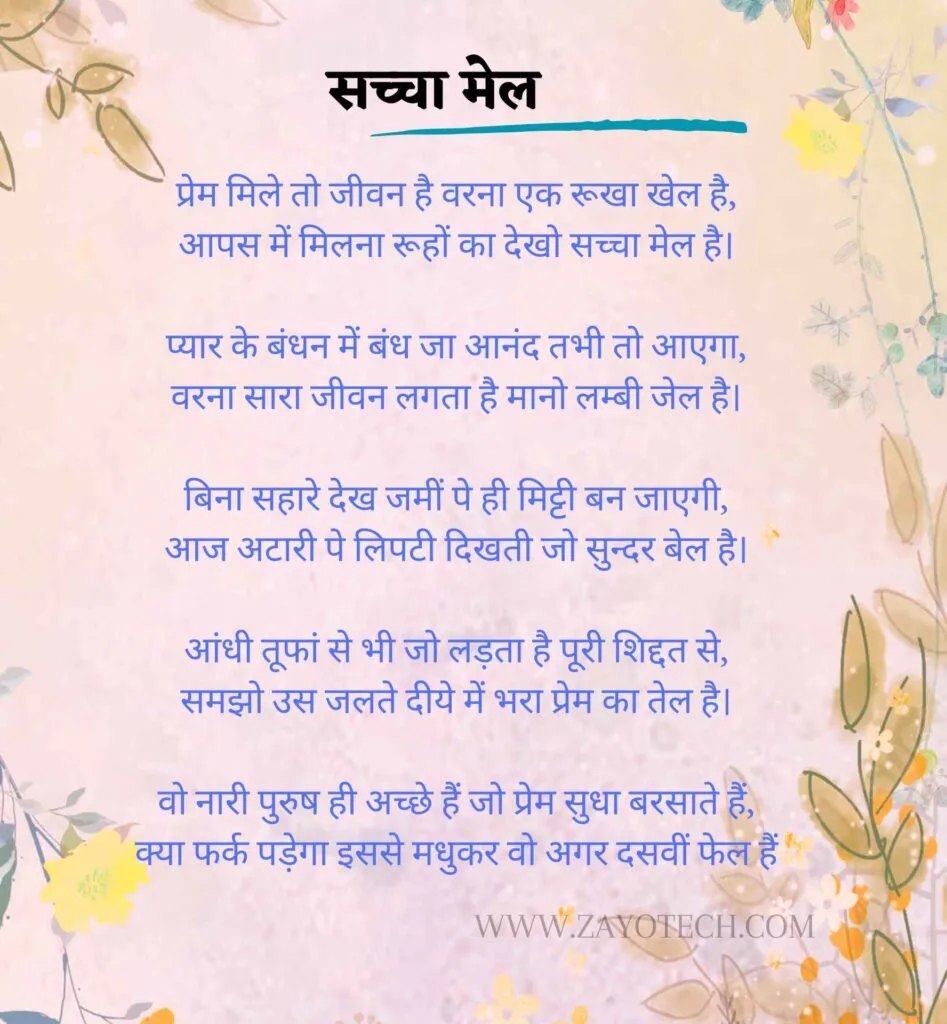 सच्चा मेल
प्रेम मिले तो जीवन है वरना एक रूखा खेल है,
आपस में मिलना रूहों का देखो सच्चा मेल है।
प्यार के बंधन में बंध जा आनंद तभी तो आएगा,
वरना सारा जीवन लगता है मानो लम्बी जेल है।
बिना सहारे देख जमीं पे ही मिट्टी बन जाएगी,
आज अटारी पे लिपटी दिखती जो सुन्दर बेल है।
आंधी तूफां से भी जो लड़ता है पूरी शिद्दत से,
समझो उस जलते दीये में भरा प्रेम का तेल है।
वो नारी पुरुष ही अच्छे हैं जो प्रेम सुधा बरसाते हैं,
क्या फर्क पड़ेगा इससे मधुकर वो अगर दसवीं फेल हैं
WWW.ZAYOTECH.COM